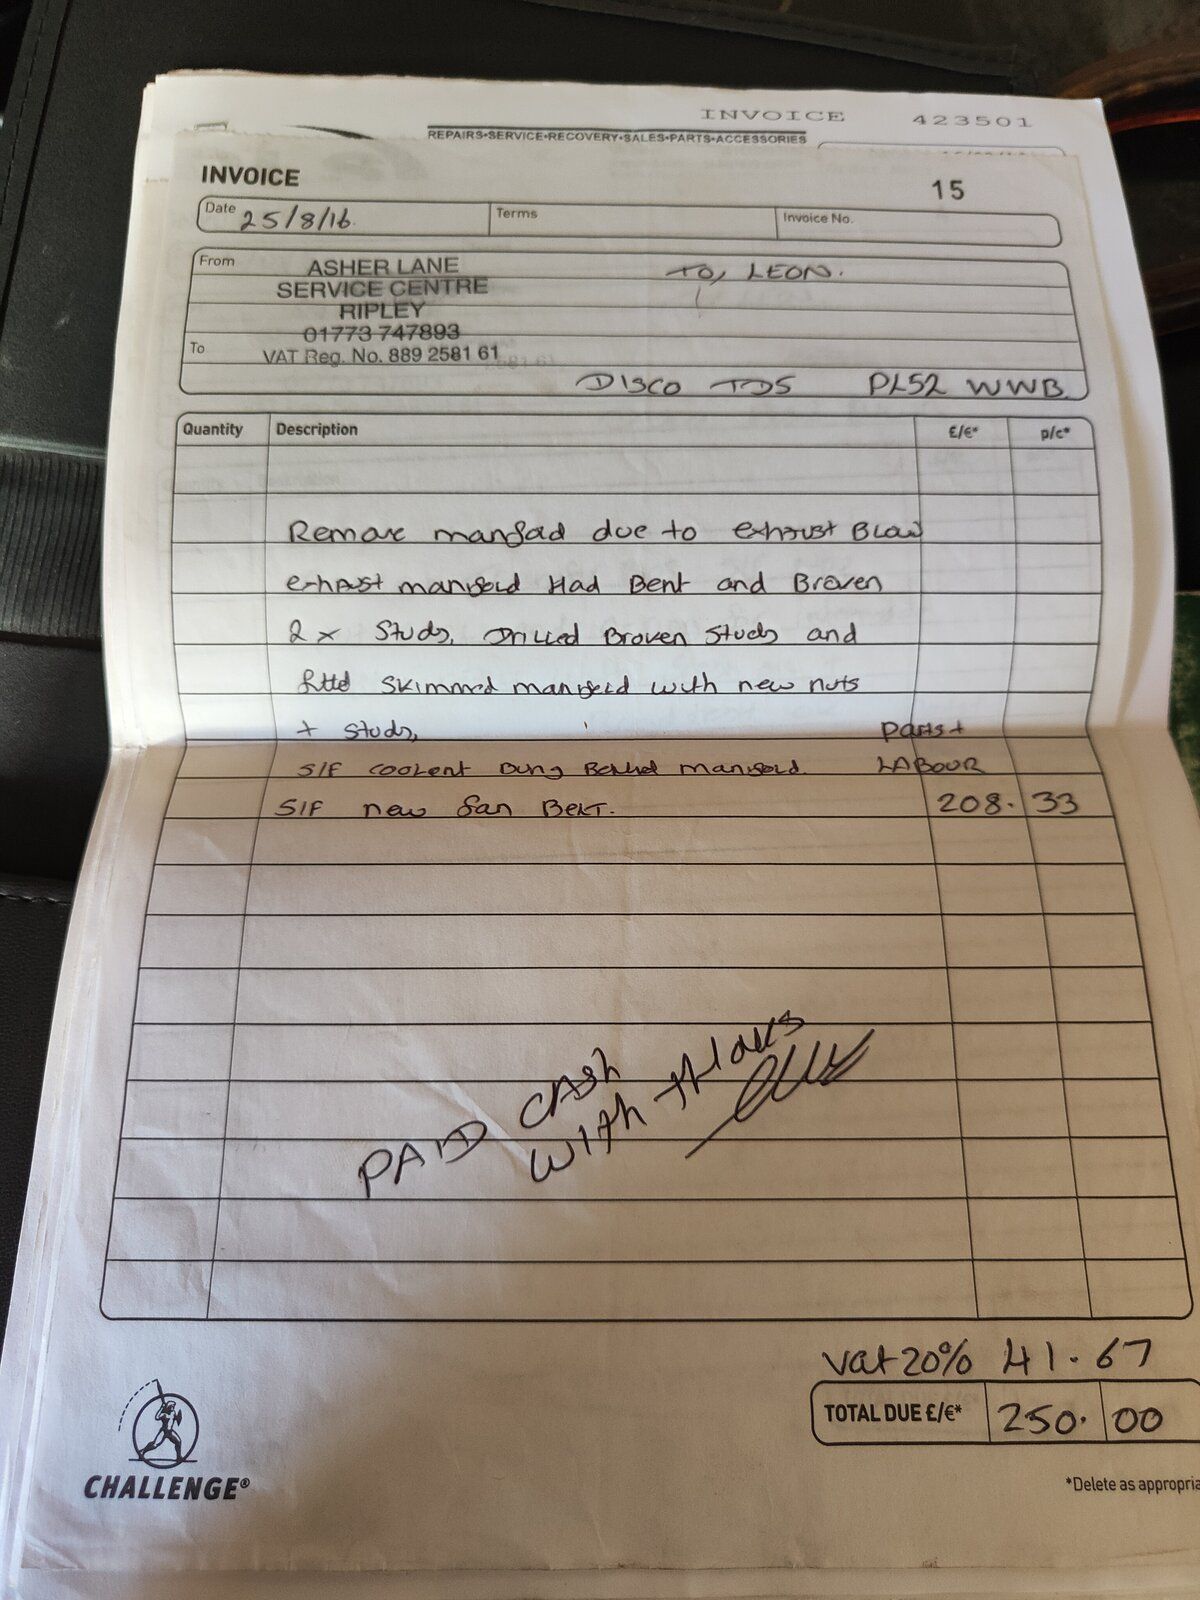 INVOICE 423501
REPAIRS•SERVICE•RECOVERY•SALES•PARTS•ACCESSORIES
INVOICE
15
Date 25/8/16. Terms Invoice No.
From
ASHER LANE
SERVICE CENTRE
RIPLEY
01773 747893
VAT Reg. No. 889 2581 61
To, LEON.
To
DISCO TD5 PL52 WWB
Quantity Description £/€* p/c*
Remove manifold due to exhaust Blow
exhaust manifold Had Bent and Broken
2 x Studs, Drilled Broken Studs and
fitted Skimmed manifold with new nuts
+ Studs,
Parts +
S/F coolent Bekind manifold. LABOUR
S/F new fan Belt. 208. 33
PAID CASH
WITH THANKS
vat 20% 41.67
TOTAL DUE £/€* 250. 00
CHALLENGE®
*Delete as appropria